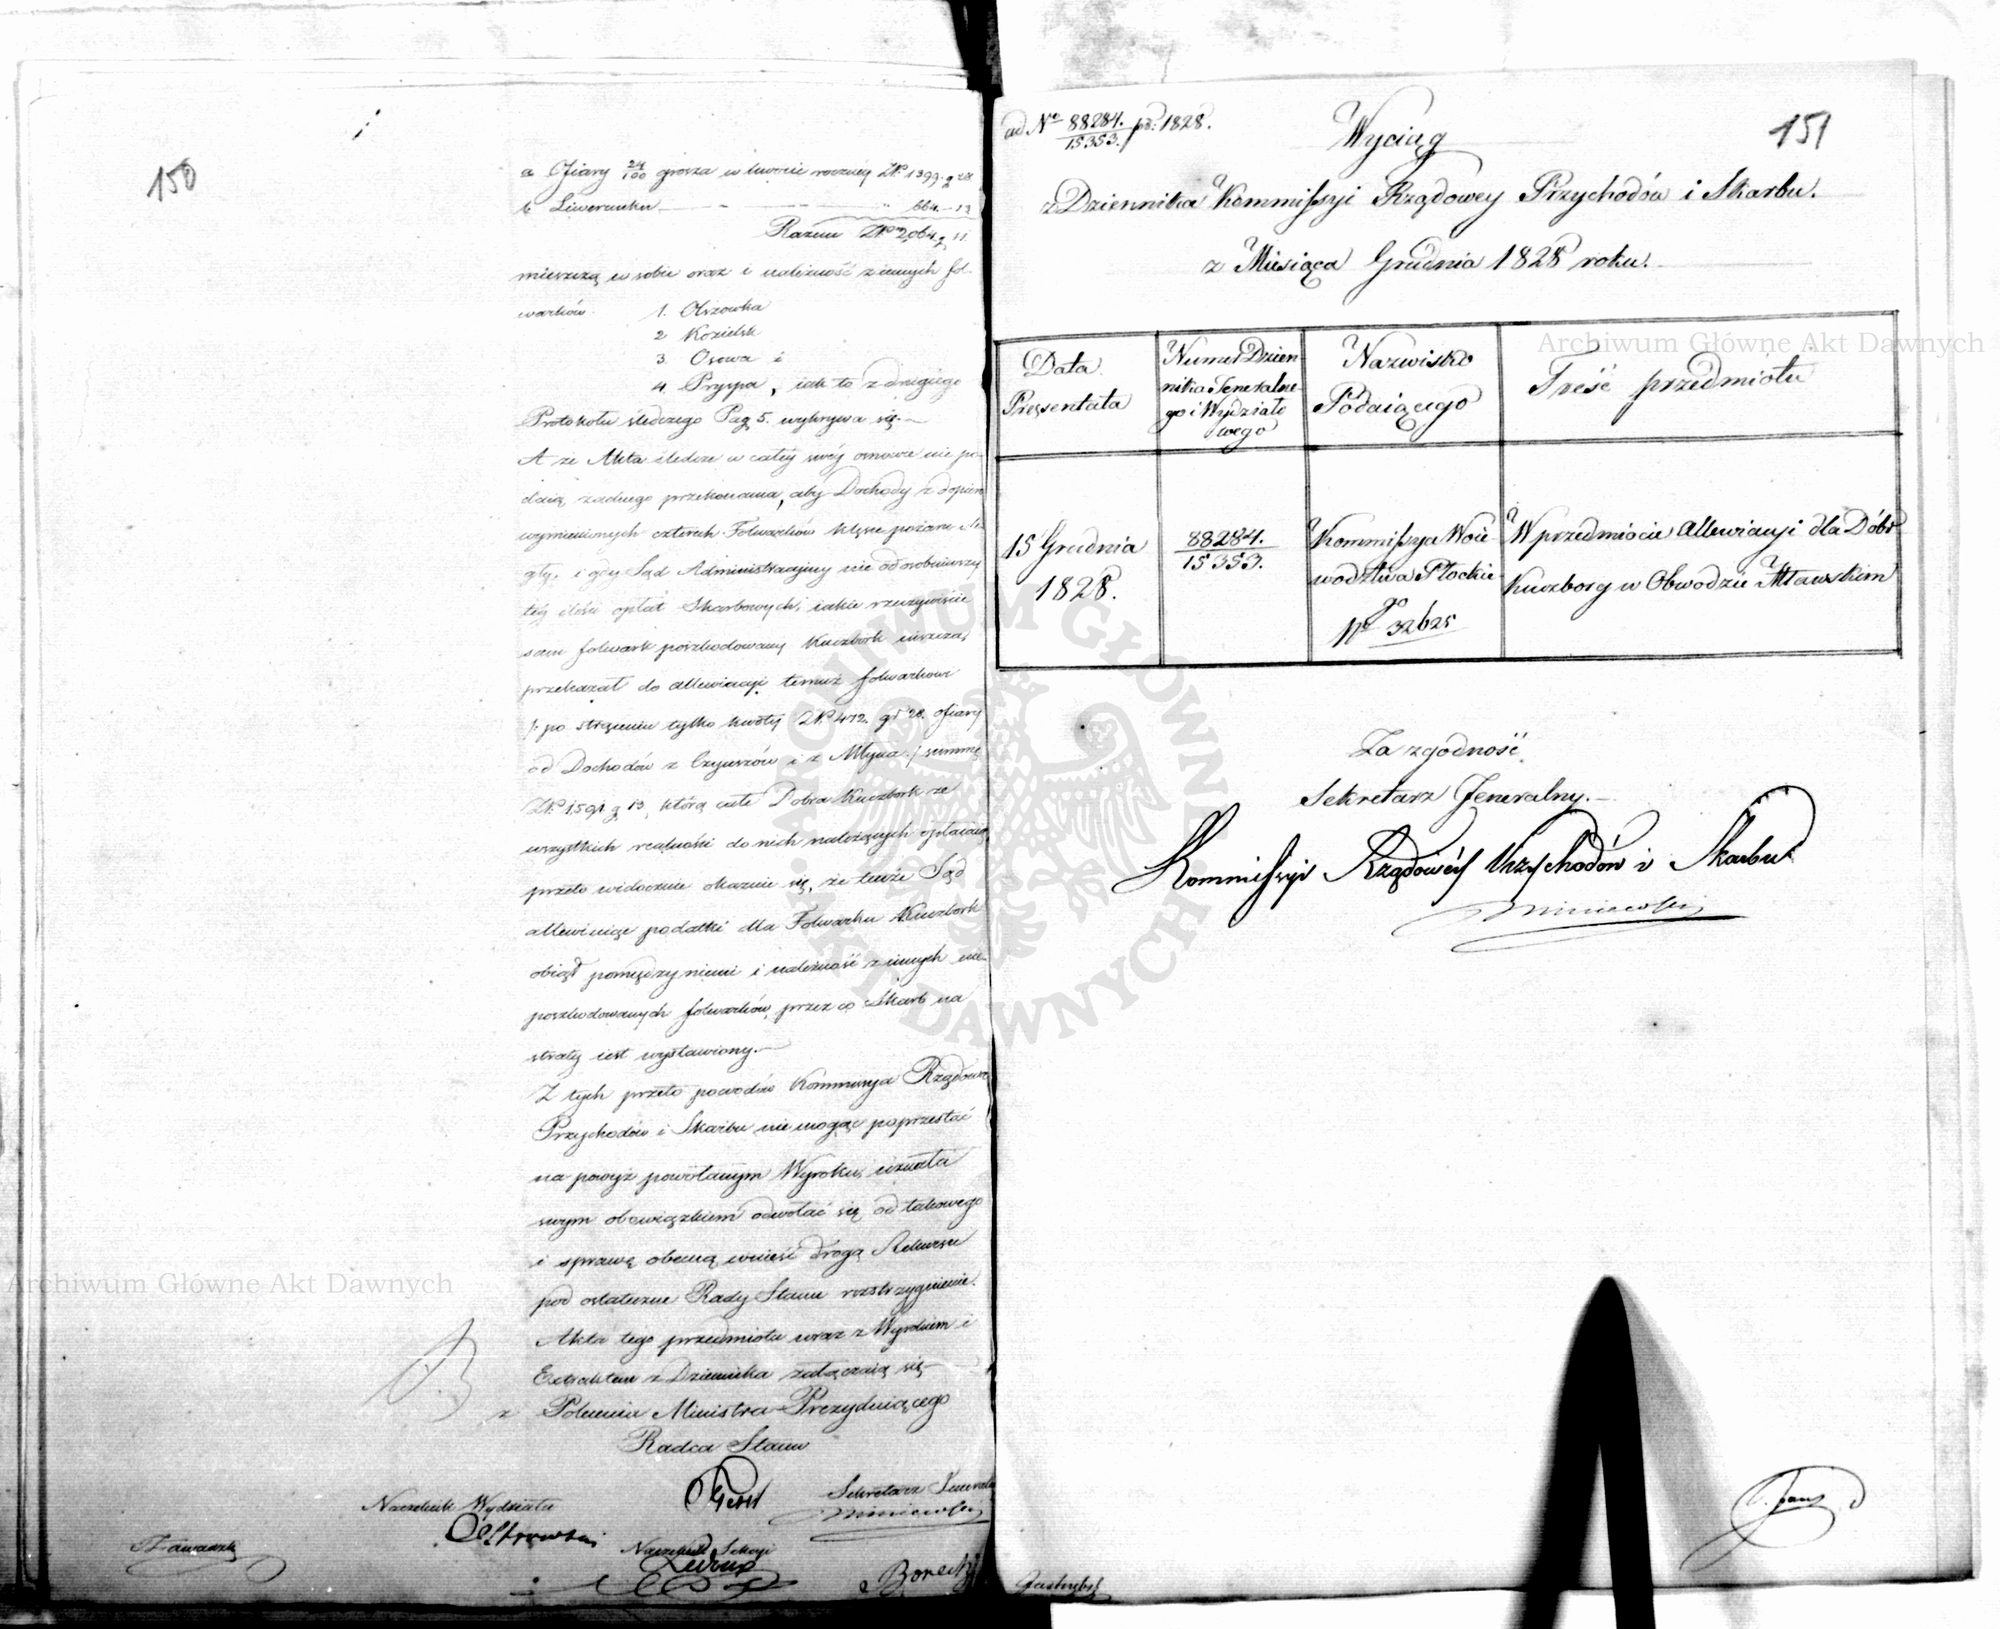 150
a Ofiary 24/100 grosza w kwocie roczniey ZłP. 1399. g 28
b Liwerunku 664 - 13
Razem ZłP. 2064 g 11.
mieszczą w sobie oraz i należność z innych fol-
warków. 1. Olszowka
2 Kozielsk
3. Osowa i
4 Przyspa, iak to z drugiego
Protokołu śledczego Pag 5. wykrywa się.—
A że Akta śledcze w całey swéy osnowie nie po-
daią żadnego przekonania, aby Dochody z dopiero
wymienionych czterech Folwarków klęsce pożaru
gły, i gdy Sąd Administracyjny nie odosobniwszy
téy ilości opłat Skarbowych, iakie rzeczywiście
sam folwark poszkodowany Kuczbork uiszcza,
przekazał do allewiacyi temuż folwarkowi
/: po strąceniu tylko kwoty ZłP. 472. gr 28. ofiary
od Dochodów z Czynszów i z Młyna :/ summę
ZłP. 1591 g 13, którą całe Dobra Kuczbork ze
wszystkich realności do nich należących opłacaią
przeto widocznie okazuie się, że tenże Sąd
allewiuiąc podatki dla Folwarku Kuczbork
obiął pomiędzy niemi i należność z innych nie-
poszkodowanych folwarków, przez co Skarb na
stratę iest wystawiony.—
Z tych przeto powodów Kommissya Rządowa
Przychodów i Skarbu nie mogąc poprzestać
na powyż powołanym Wyroku, uznała
swym obowiązkiem odwołać się od takowego
i sprawę obecną wnieść drogą Rekursu
pod ostateczne Rady Stanu rozstrzygnienie.
Akta tego przedmiotu wraz z Wyrokiem i
Extraktem z Dziennika załączaią się—
z Polecenia Ministra Prezyduiącego
Radca Stanu
Sekretarz Jeneralny
Miniewski
Naczelnik Wydziału
Ostrowski
Naczelnik Sekcyi
Zawadzki
ad No 88284./15353. pr: 1828.
151
Wyciąg
z Dziennika Kommissyi Rządowey Przychodów i Skarbu.
z Miesiąca Grudnia 1828 roku.
Data Prezentata
Numer Dziennika Jeneralnego i Wydziałowego
Nazwisko Podaiącego
Treść przedmiotu
15 Grudnia 1828.
88284./15353.
Kommissya Woie-
wodztwa Płockie-
go
No 32625
W przedmiocie allewiacyi dla Dóbr
Kuczborg w Obwodzie Mławskim
Za zgodność
Sekretarz Jeneralny.—
Kommissyi Rządowéy Przychodów i Skarbu
Miniewski
Archiwum Główne Akt Dawnych
Archiwum Główne Akt Dawnych
ARCHIWUM GŁÓWNE AKT DAWNYCH